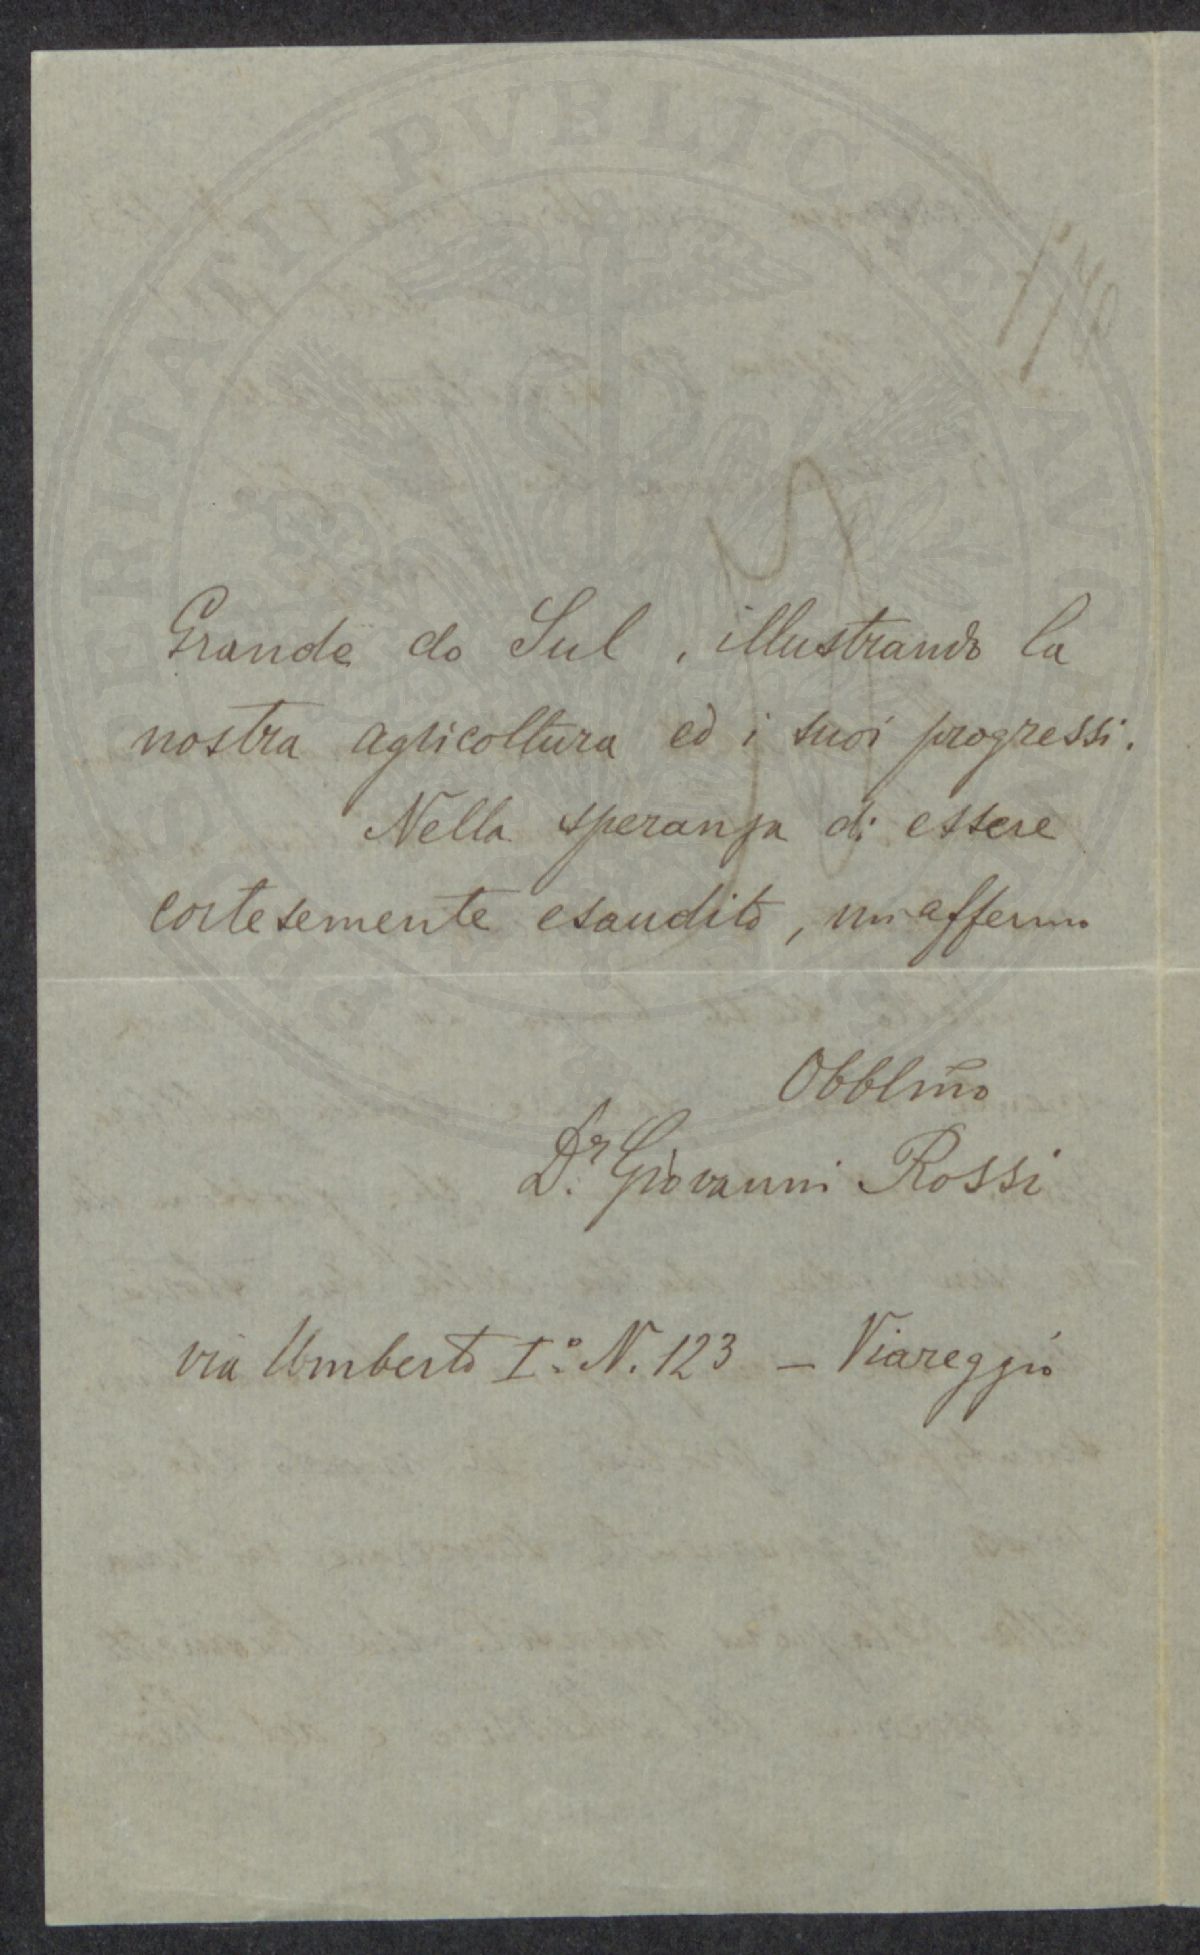 Grande do Sul, illustrando la
nostra agricoltura ed i suoi progressi.
Nella speranza di essere
cortesemente esaudito, mi affermo
Obblmo
Dr. Giovanni Rossi
via Umberto Iº. N. 123 — Viareggio